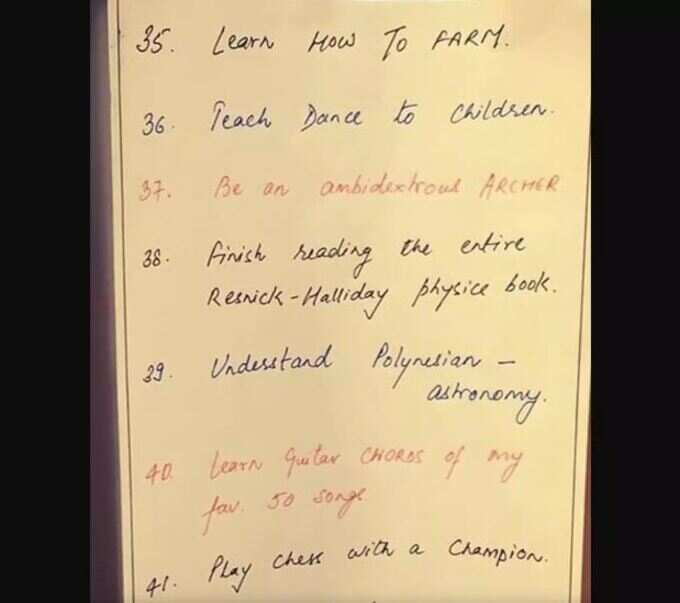 35. Learn HOW TO FARM.
36. Teach Dance to Children.
37. Be an ambidextrous ARCHER
38. finish reading the entire
Resnick-Halliday physics book.
39. Understand Polynesian -
astronomy.
40. Learn Guitar CHORDS of my
fav. 50 songs.
41. Play Chess with a Champion.